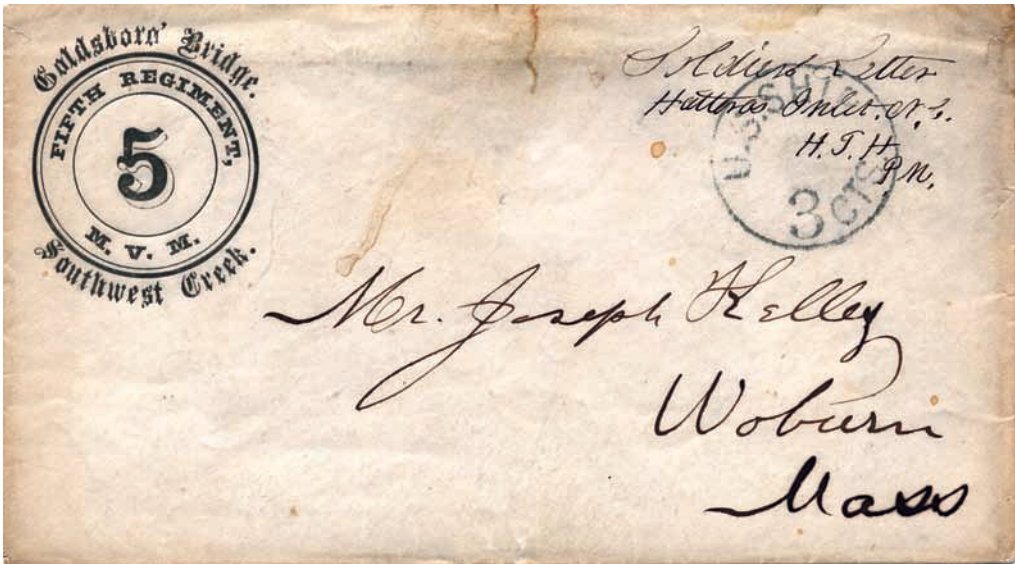 Goldsboro' Bridge.
FIFTH REGIMENT,
5
M. V. M.
Southwest Creek.
Soldiers Letter
Hatteras Inlet. N. C.
H. T. H
P M.
U.S. SHIP
3 CTS
Mr. Joseph Kelley
Woburn
Mass